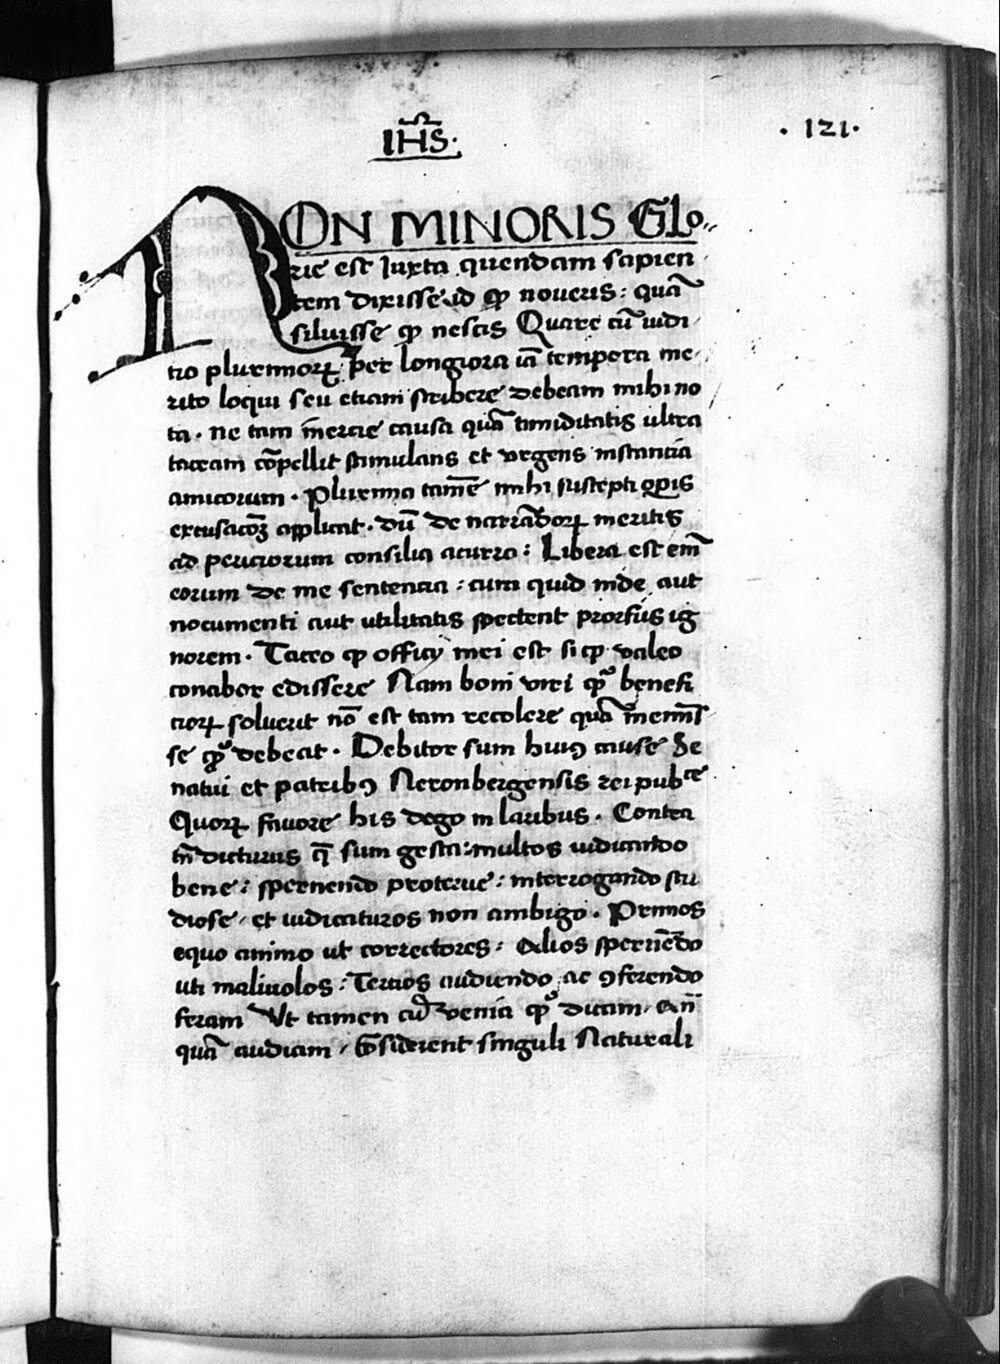 IHS.
. 121.
NON MINORIS Glo„
rie est Iuxta quendam sapien
tem dixisse id qp noueris : quā
siluisse qp nescis Quare cū iudi
tio plurimoꝝ per longiora iā tempora me
rito loqui seu etiam scribere debeam mihi no
ta . ne tam inercie causa quā timiditatis ultra
taceam cōpellit stimulans et vrgens instancia
amicorum . Plurima tamē mihi suscepti opis
excusacōꝫ applicat . dū de narrādoꝝ meritis
ad periciorum consilia acurro : Libera est em̄
eorum de me sentencia : cum quid inde aut
nocumenti aut utilitatis spectent prorsus ig
norem . Taceo qp officij mei est si qp valeo
conabor edissere Nam boni viri qp° benefi
cioꝝ soluerit nō est tam recolere quā memīs
se qp° debeat . Debitor sum huiꝰ cause Se
natui et patribꝰ Neronbergensis rei pubce
Quoꝝ fauore his dego in laribus . Contra
tn̄ dicturus q̄ sum gesta : multos iudicando
bene : spernendo proterue : interrogando stu
diose , et iudicaturos non ambigo . Primos
equo animo ut correctores : Alios spernēdo
uti maliuolos : Tercios audiendo ac ꝯferendo
feram Vt tamen cū venia qp° dicam , an̄
quā audiam , Cōsiderent singuli Naturali